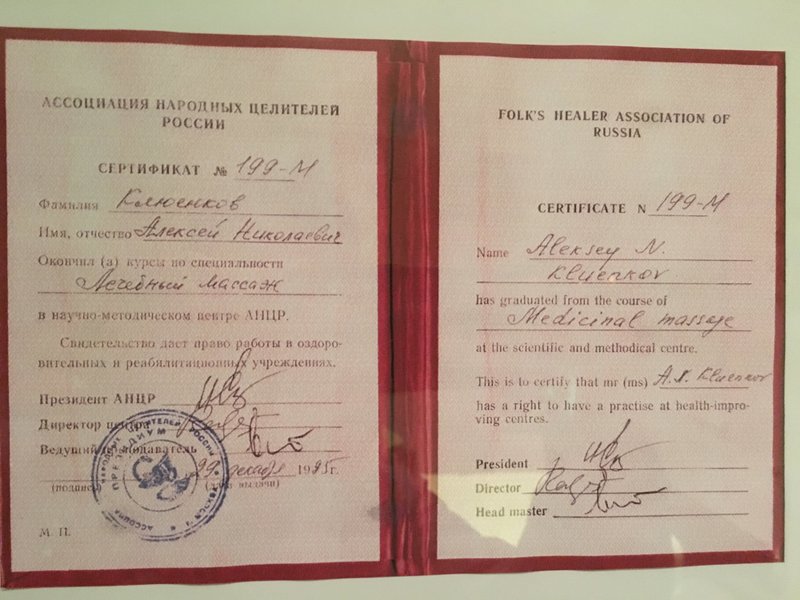 АССОЦИАЦИЯ НАРОДНЫХ ЦЕЛИТЕЛЕЙ
РОССИИ
СЕРТИФИКАТ № 199-М
Фамилия Клюенков
Имя, отчество Алексей Николаевич
Окончил (а) курсы по специальности
Лечебный массаж
в научно-методическом центре АНЦР.
Свидетельство дает право работы в оздоро-
вительных и реабилитационных учреждениях.
Президент АНЦР
Директор центра
Ведущий преподаватель
29 декабря 1995г.
(подпись) (дата выдачи)
М. П.
FOLK'S HEALER ASSOCIATION OF
RUSSIA
CERTIFICATE N 199-M
Name Aleksey N.
Kluenkov
has graduated from the course of
Medicinal massage
at the scientific and methodical centre.
This is to certify that mr (ms) A.N. Kluenkov
has a right to have a practise at health-impro-
ving centres.
President
Director
Head master